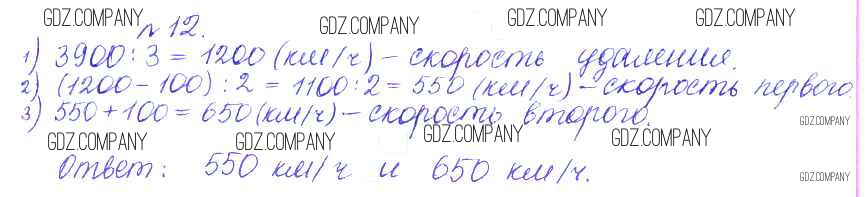 GDZ.COMPANY GDZ.COMPANY GDZ.COMPANY GDZ.COMPANY
№ 12.
1) 3900 : 3 = 1200 (км/ч) – скорость удаления.
2) (1200 – 100) : 2 = 1100 : 2 = 550 (км/ч) – скорость первого.
3) 550 + 100 = 650 (км/ч) – скорость второго.
GDZ.COMPANY
GDZ.COMPANY GDZ.COMPANY GDZ.COMPANY GDZ.COMPANY
Ответ: 550 км/ч и 650 км/ч.
GDZ.COMPANY